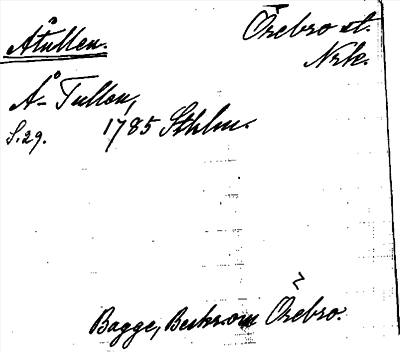 Åtullen.
Örebro st.
Nrk.
Å-Tullen,
S. 29.
1785 Sthlm.
Bagge, Beskr. om Örebro.